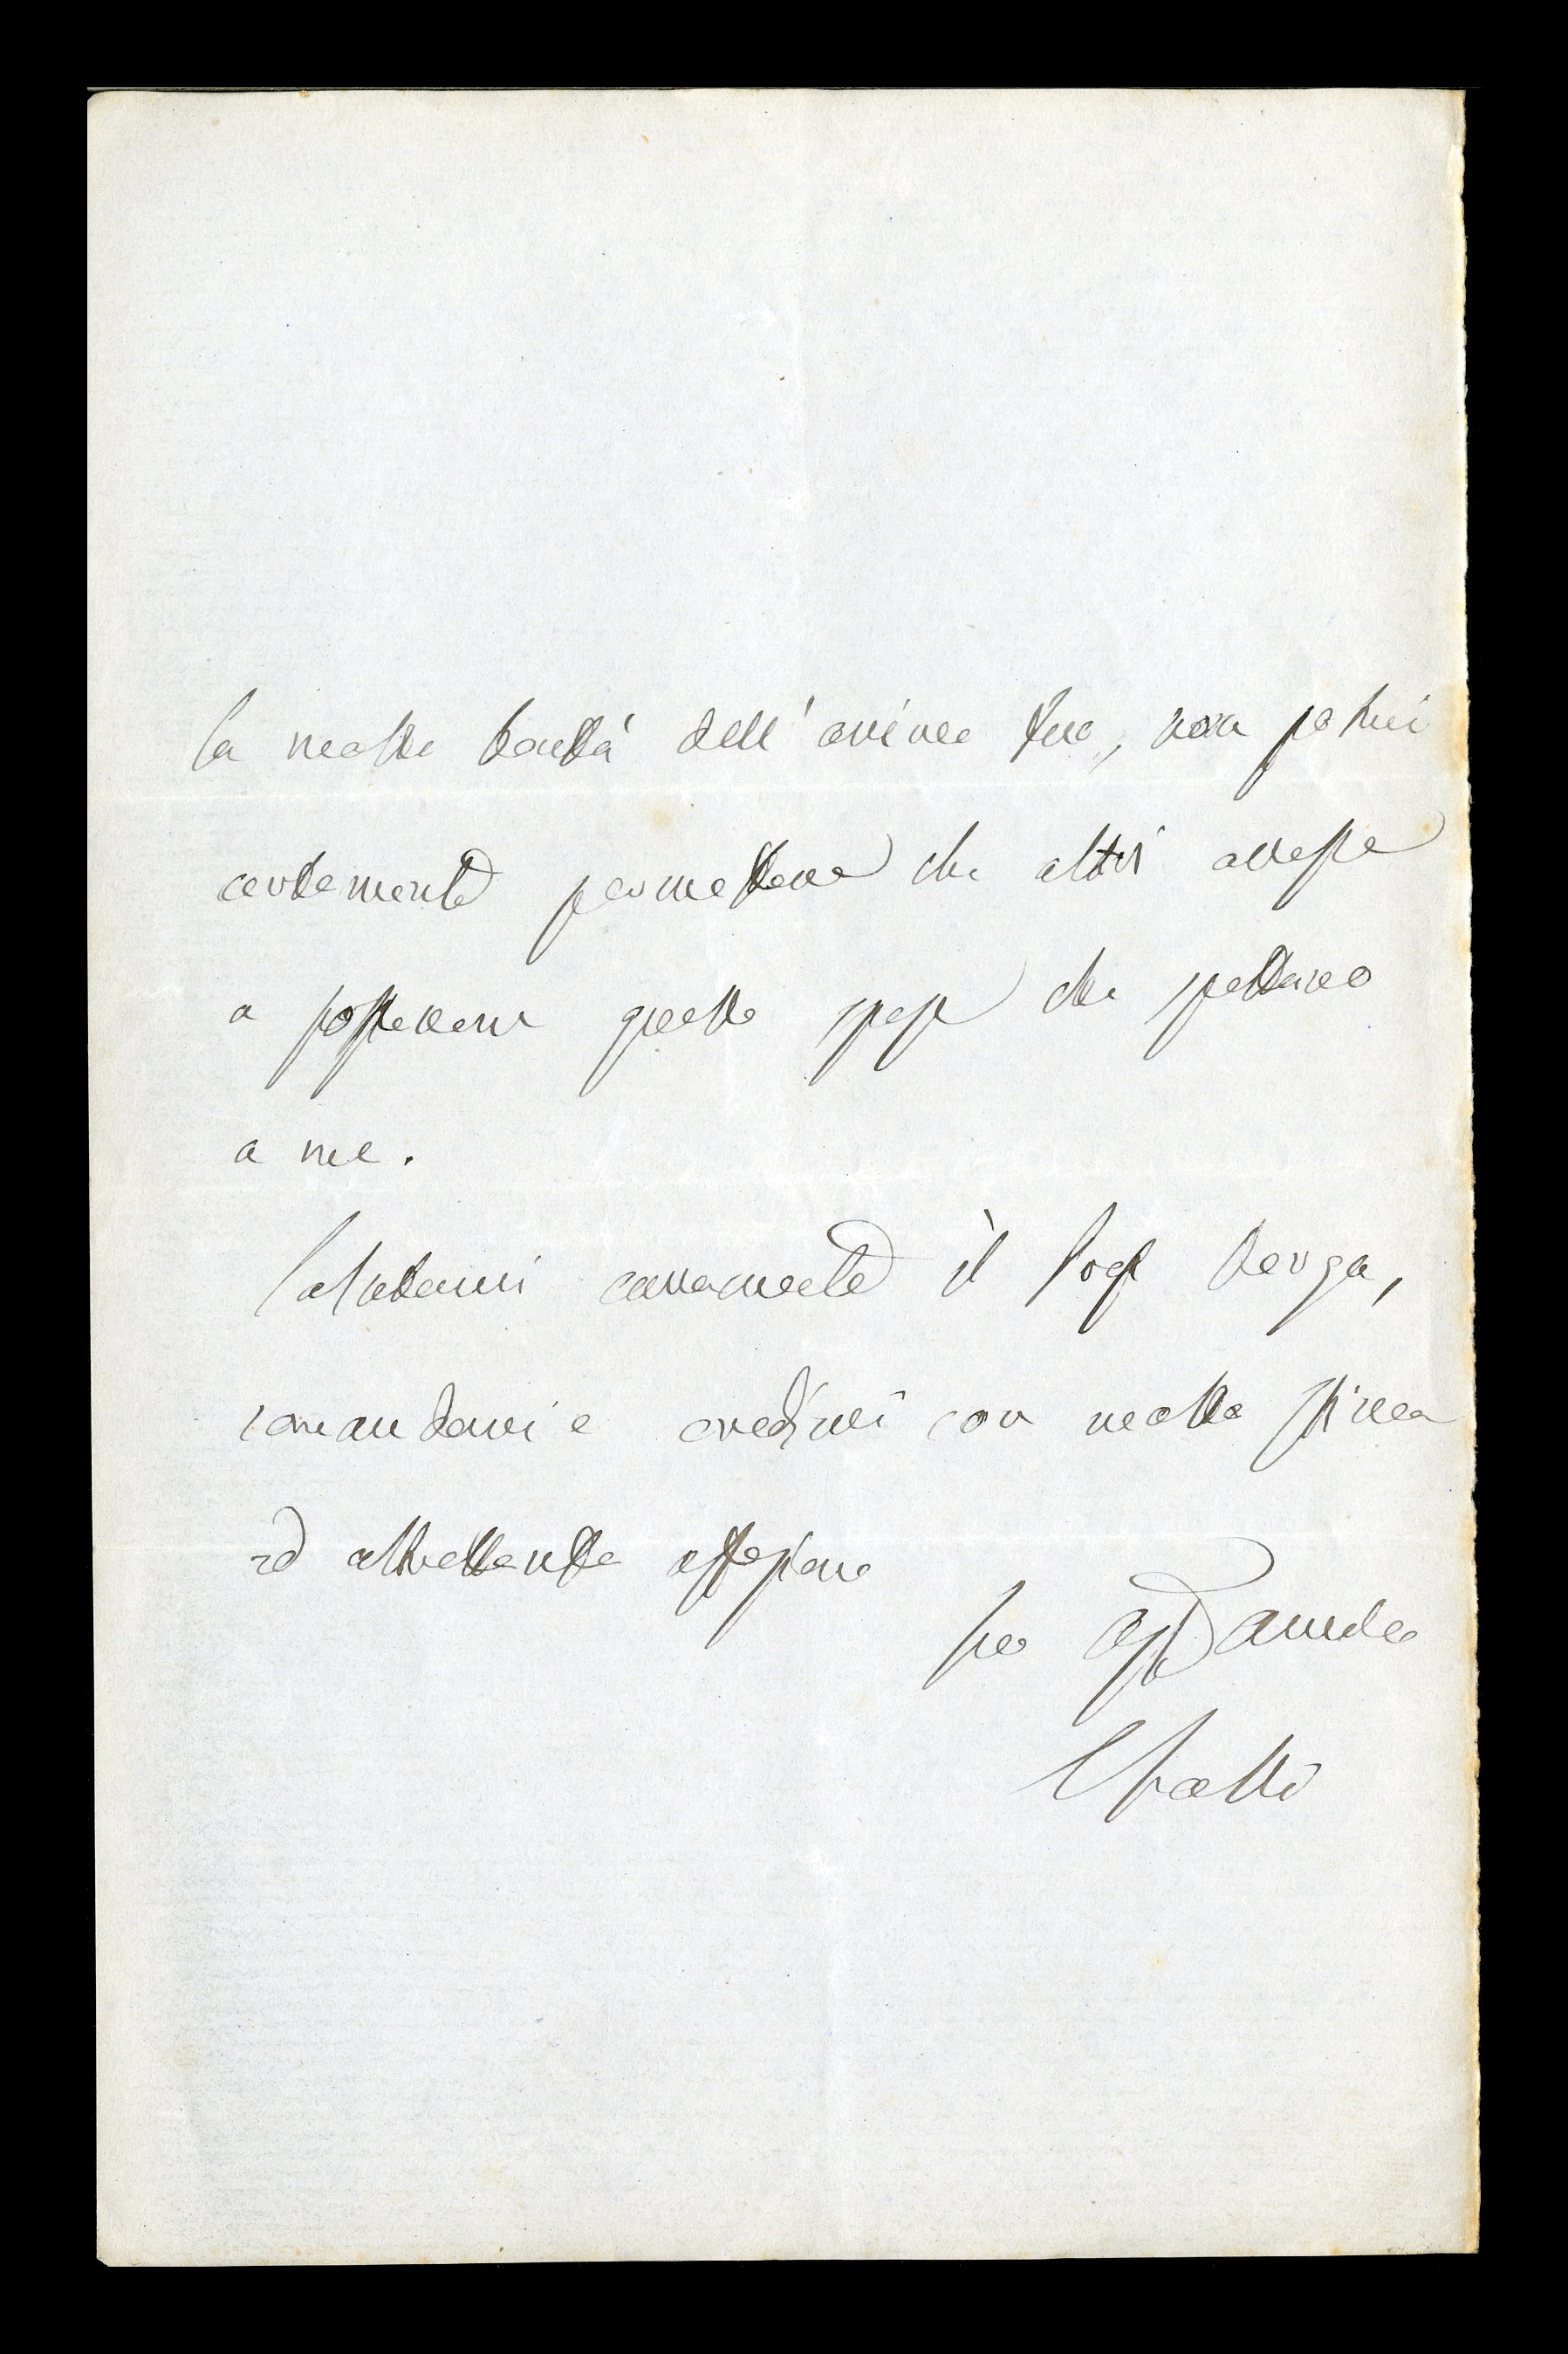 la molta bontà dell'animo suo, non potrei
certamente permettere che altri avesse
a sostenere quelle spese che spettano
a me.
Salutami caramente il Prof Verga,
comandami e credimi con molta stima
ed altrettanta affezione
tuo aff amico